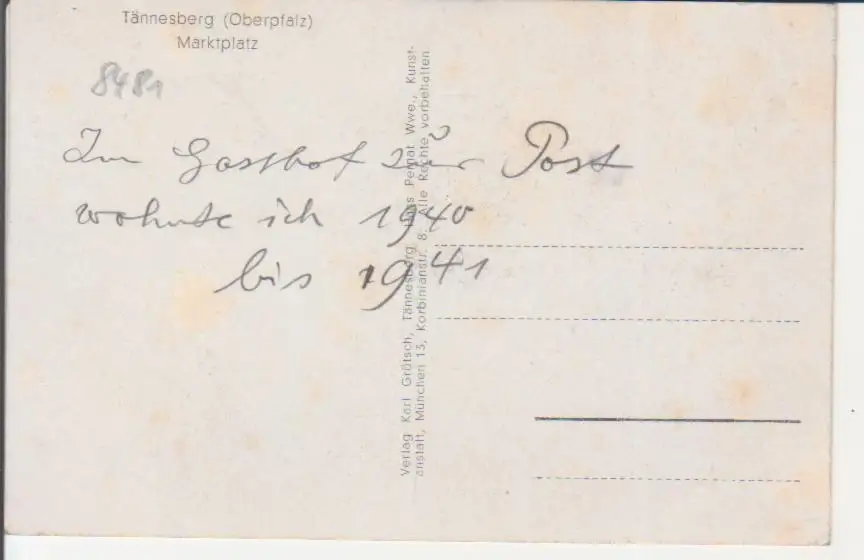 Tännesberg (Oberpfalz)
Marktplatz
8481
Im Gasthof zur Post
wohnte ich 1940
bis 1941
Verlag Karl Grötsch, Tännesberg. Hans Pernat Wwe., Kunst-
anstalt, München 13, Korbinianstr. 8. Alle Rechte vorbehalten